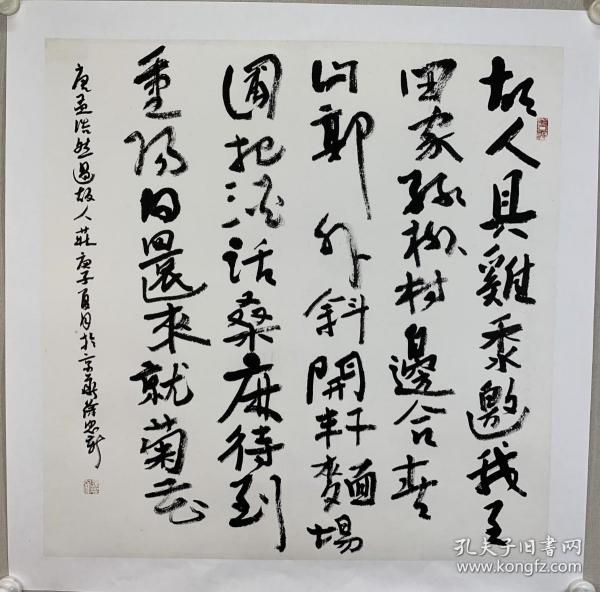 故人具雞黍邀我至
田家綠樹村邊合青
山郭外斜開軒麵場
圃把酒話桑麻待到
重陽日還來就菊花
唐孟浩然過故人莊庚子夏月於京
孔夫子旧书网
www.kongfz.com